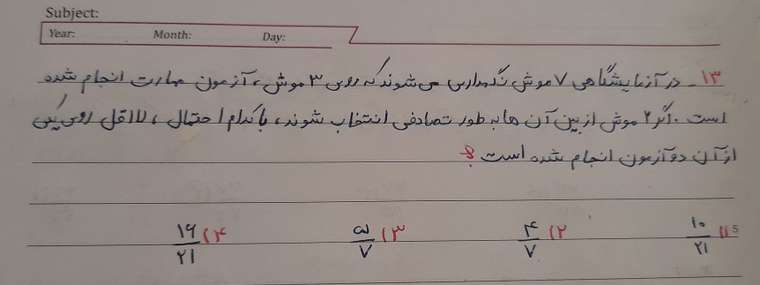 Subject:
Year: Month: Day:
۱۳ - در آزمایشگاهی ۷ موش نگهداری می‌شوند که روی ۳ موش، آزمون مهارت انجام شده
است. اگر ۲ موش از بین آن ها به طور تصادفی انتخاب شوند، با کدام احتمال، لااقل روی یکی
از آن دو آزمون انجام شده است؟
۱) ۱۰/۲۱ ۲) ۴/۷ ۳) ۵/۷ ۴) ۱۶/۲۱
5